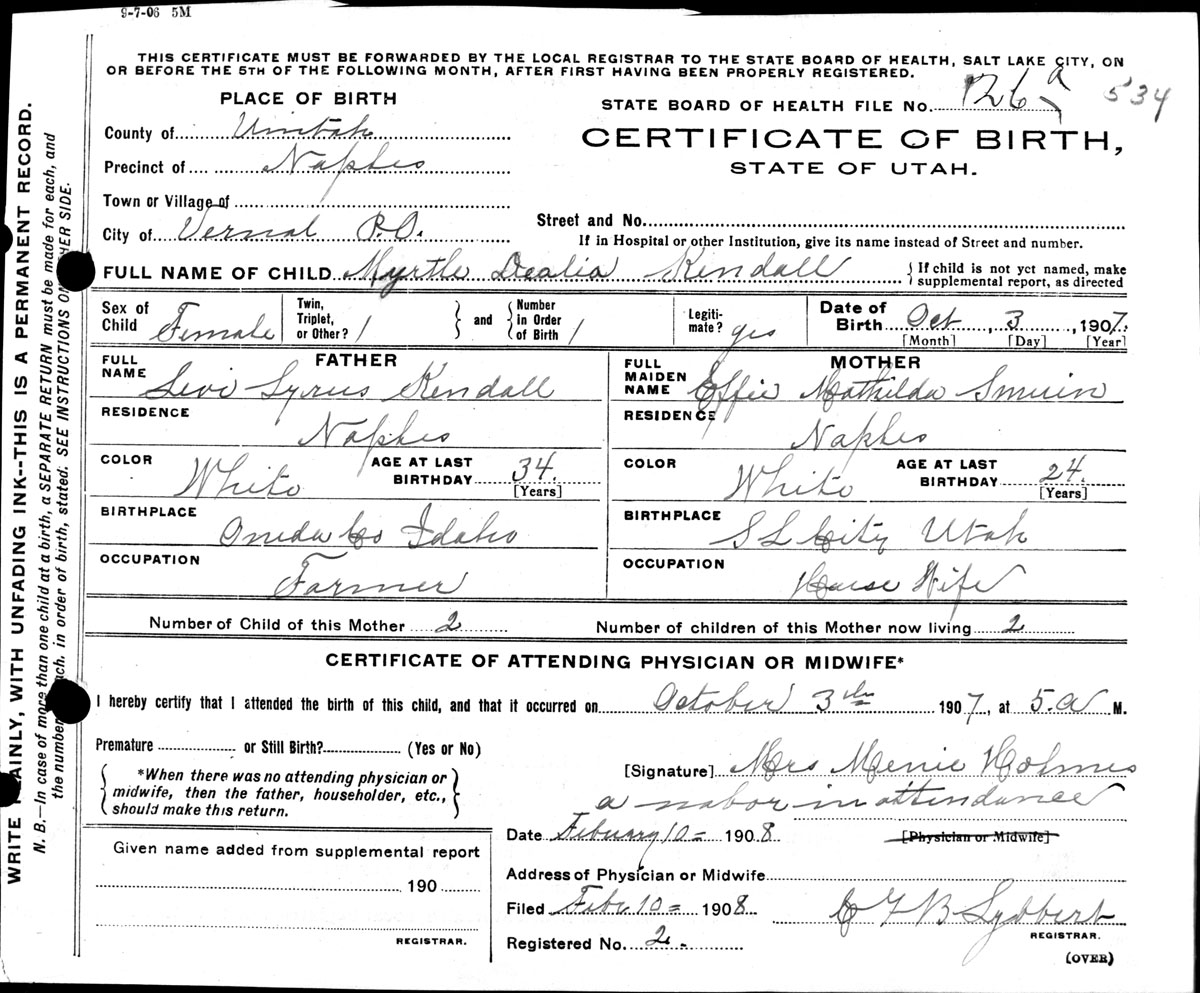 9-7-06 5M
THIS CERTIFICATE MUST BE FORWARDED BY THE LOCAL REGISTRAR TO THE STATE BOARD OF HEALTH, SALT LAKE CITY, ON
OR BEFORE THE 5TH OF THE FOLLOWING MONTH, AFTER FIRST HAVING BEEN PROPERLY REGISTERED.
PLACE OF BIRTH
STATE BOARD OF HEALTH FILE No. 126 a 534
County of Uintah
CERTIFICATE OF BIRTH,
Precinct of Naples
STATE OF UTAH.
Town or Village of
Street and No.
City of Vernal P.O.
If in Hospital or other Institution, give its name instead of Street and number.
FULL NAME OF CHILD Myrtle Dealia Kendall
{ If child is not yet named, make
supplemental report, as directed
Sex of Child Female
Twin, Triplet, or Other? / } and { Number in Order of Birth /
Legiti-mate? yes
Date of Birth Oct, 3, 1907.
[Month] [Day] [Year]
FATHER
FULL NAME Levi Syrus Kendall
RESIDENCE Naples
COLOR White
AGE AT LAST BIRTHDAY 34.
[Years]
BIRTHPLACE Oneida Co Idaho
OCCUPATION Farmer
MOTHER
FULL MAIDEN NAME Effie Mathilda Smuin
RESIDENCE Naples
COLOR White
AGE AT LAST BIRTHDAY 24.
[Years]
BIRTHPLACE S L City Utah
OCCUPATION House Wife
Number of Child of this Mother 2
Number of children of this Mother now living 2
CERTIFICATE OF ATTENDING PHYSICIAN OR MIDWIFE*
I hereby certify that I attended the birth of this child, and that it occurred on October 3th 1907, at 5.a M.
Premature or Still Birth? (Yes or No)
{ *When there was no attending physician or
midwife, then the father, householder, etc.,
should make this return. }
[Signature] Mrs Menie Holmes
a nabor in attendance
Date Febuary 10= 1908
[Physician or Midwife]
Given name added from supplemental report
190
REGISTRAR.
Address of Physician or Midwife
Filed Feb. 10= 1908
C G B Sybbert
REGISTRAR.
Registered No. 2.
(OVER)
WRITE PLAINLY, WITH UNFADING INK--THIS IS A PERMANENT RECORD.
N. B.—In case of more than one child at a birth, a SEPARATE RETURN must be made for each, and
the number each, in order of birth, stated. SEE INSTRUCTIONS ON OTHER SIDE.